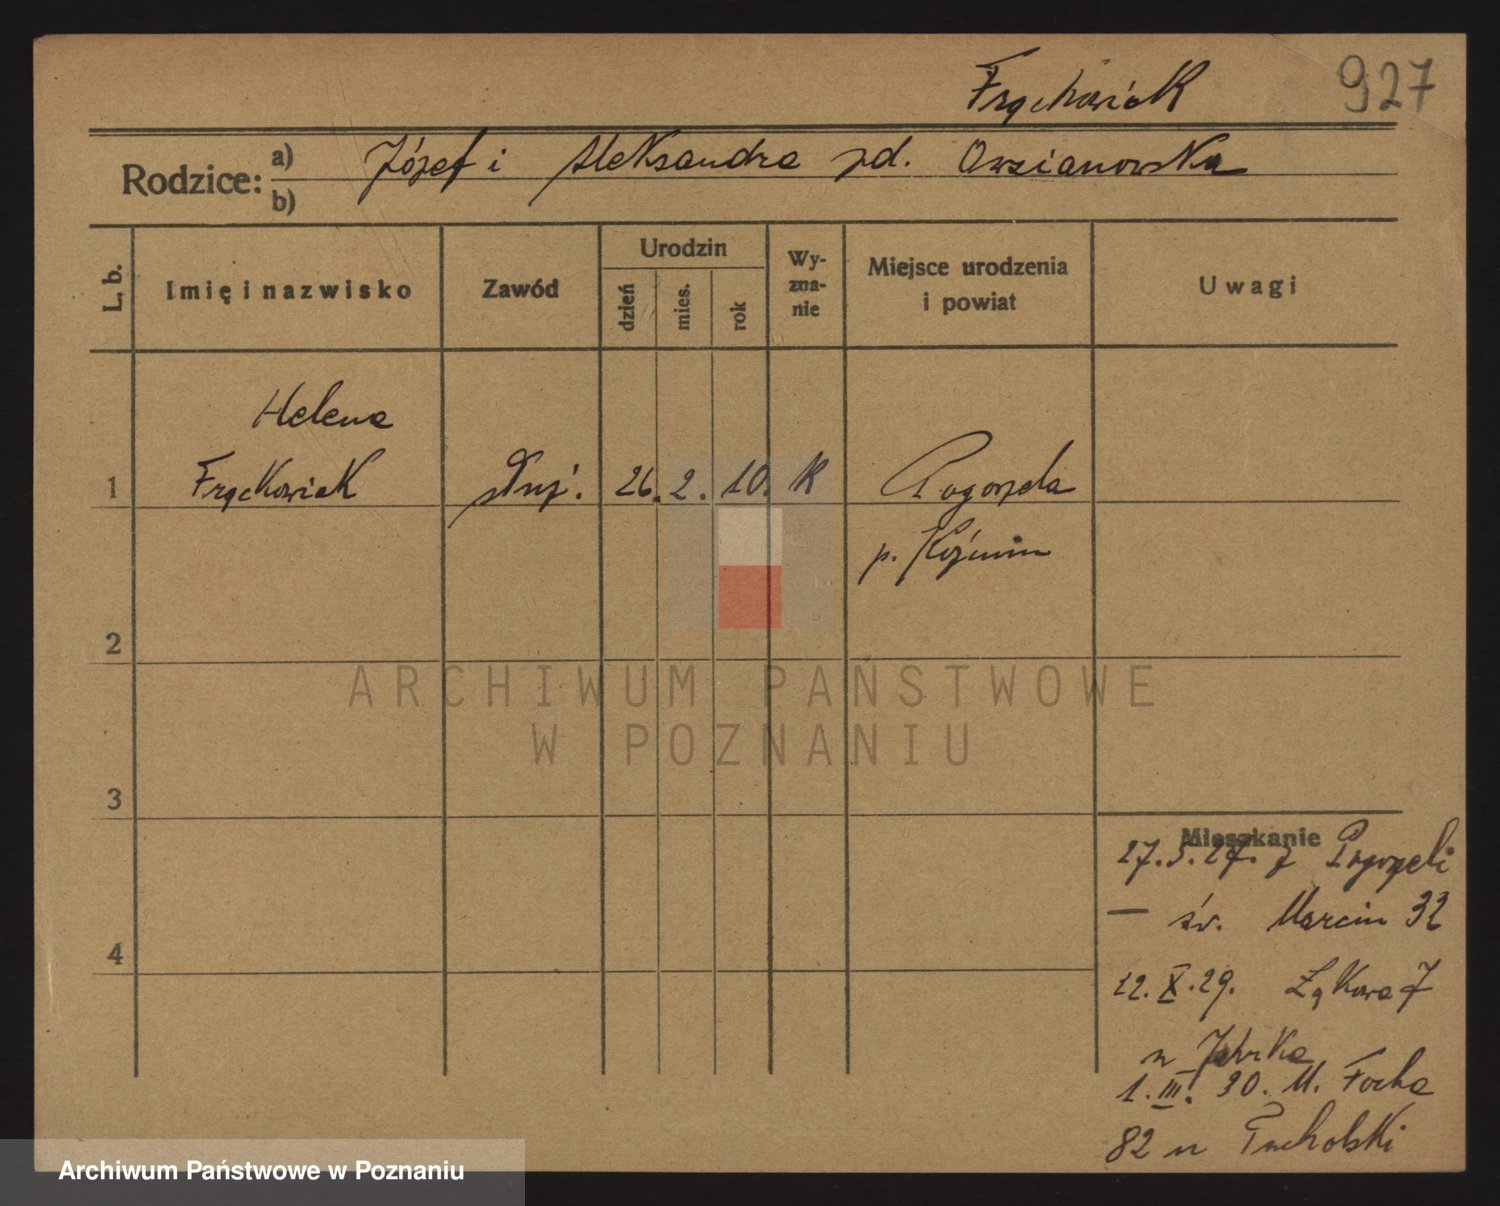 Frąckowiak
927
Rodzice: a) Józef i Aleksandra zd. Owsianowska
b)
L. b. Imię i nazwisko Zawód Urodzin dzień mies. rok Wyznanie Miejsce urodzenia i powiat Uwagi
Helena
1 Frąckowiak służ. 26. 2. 10. K Pogorzela
p. Koźmin
2
ARCHIWUM PAŃSTWOWE
W POZNANIU
3
Mieszkanie
27.5.27. z Pogorzeli
— św. Marcin 32
12.X.29. Łąkowa 7
u
1.III.30. M. Focha
82 u Pucholski
4
Archiwum Państwowe w Poznaniu